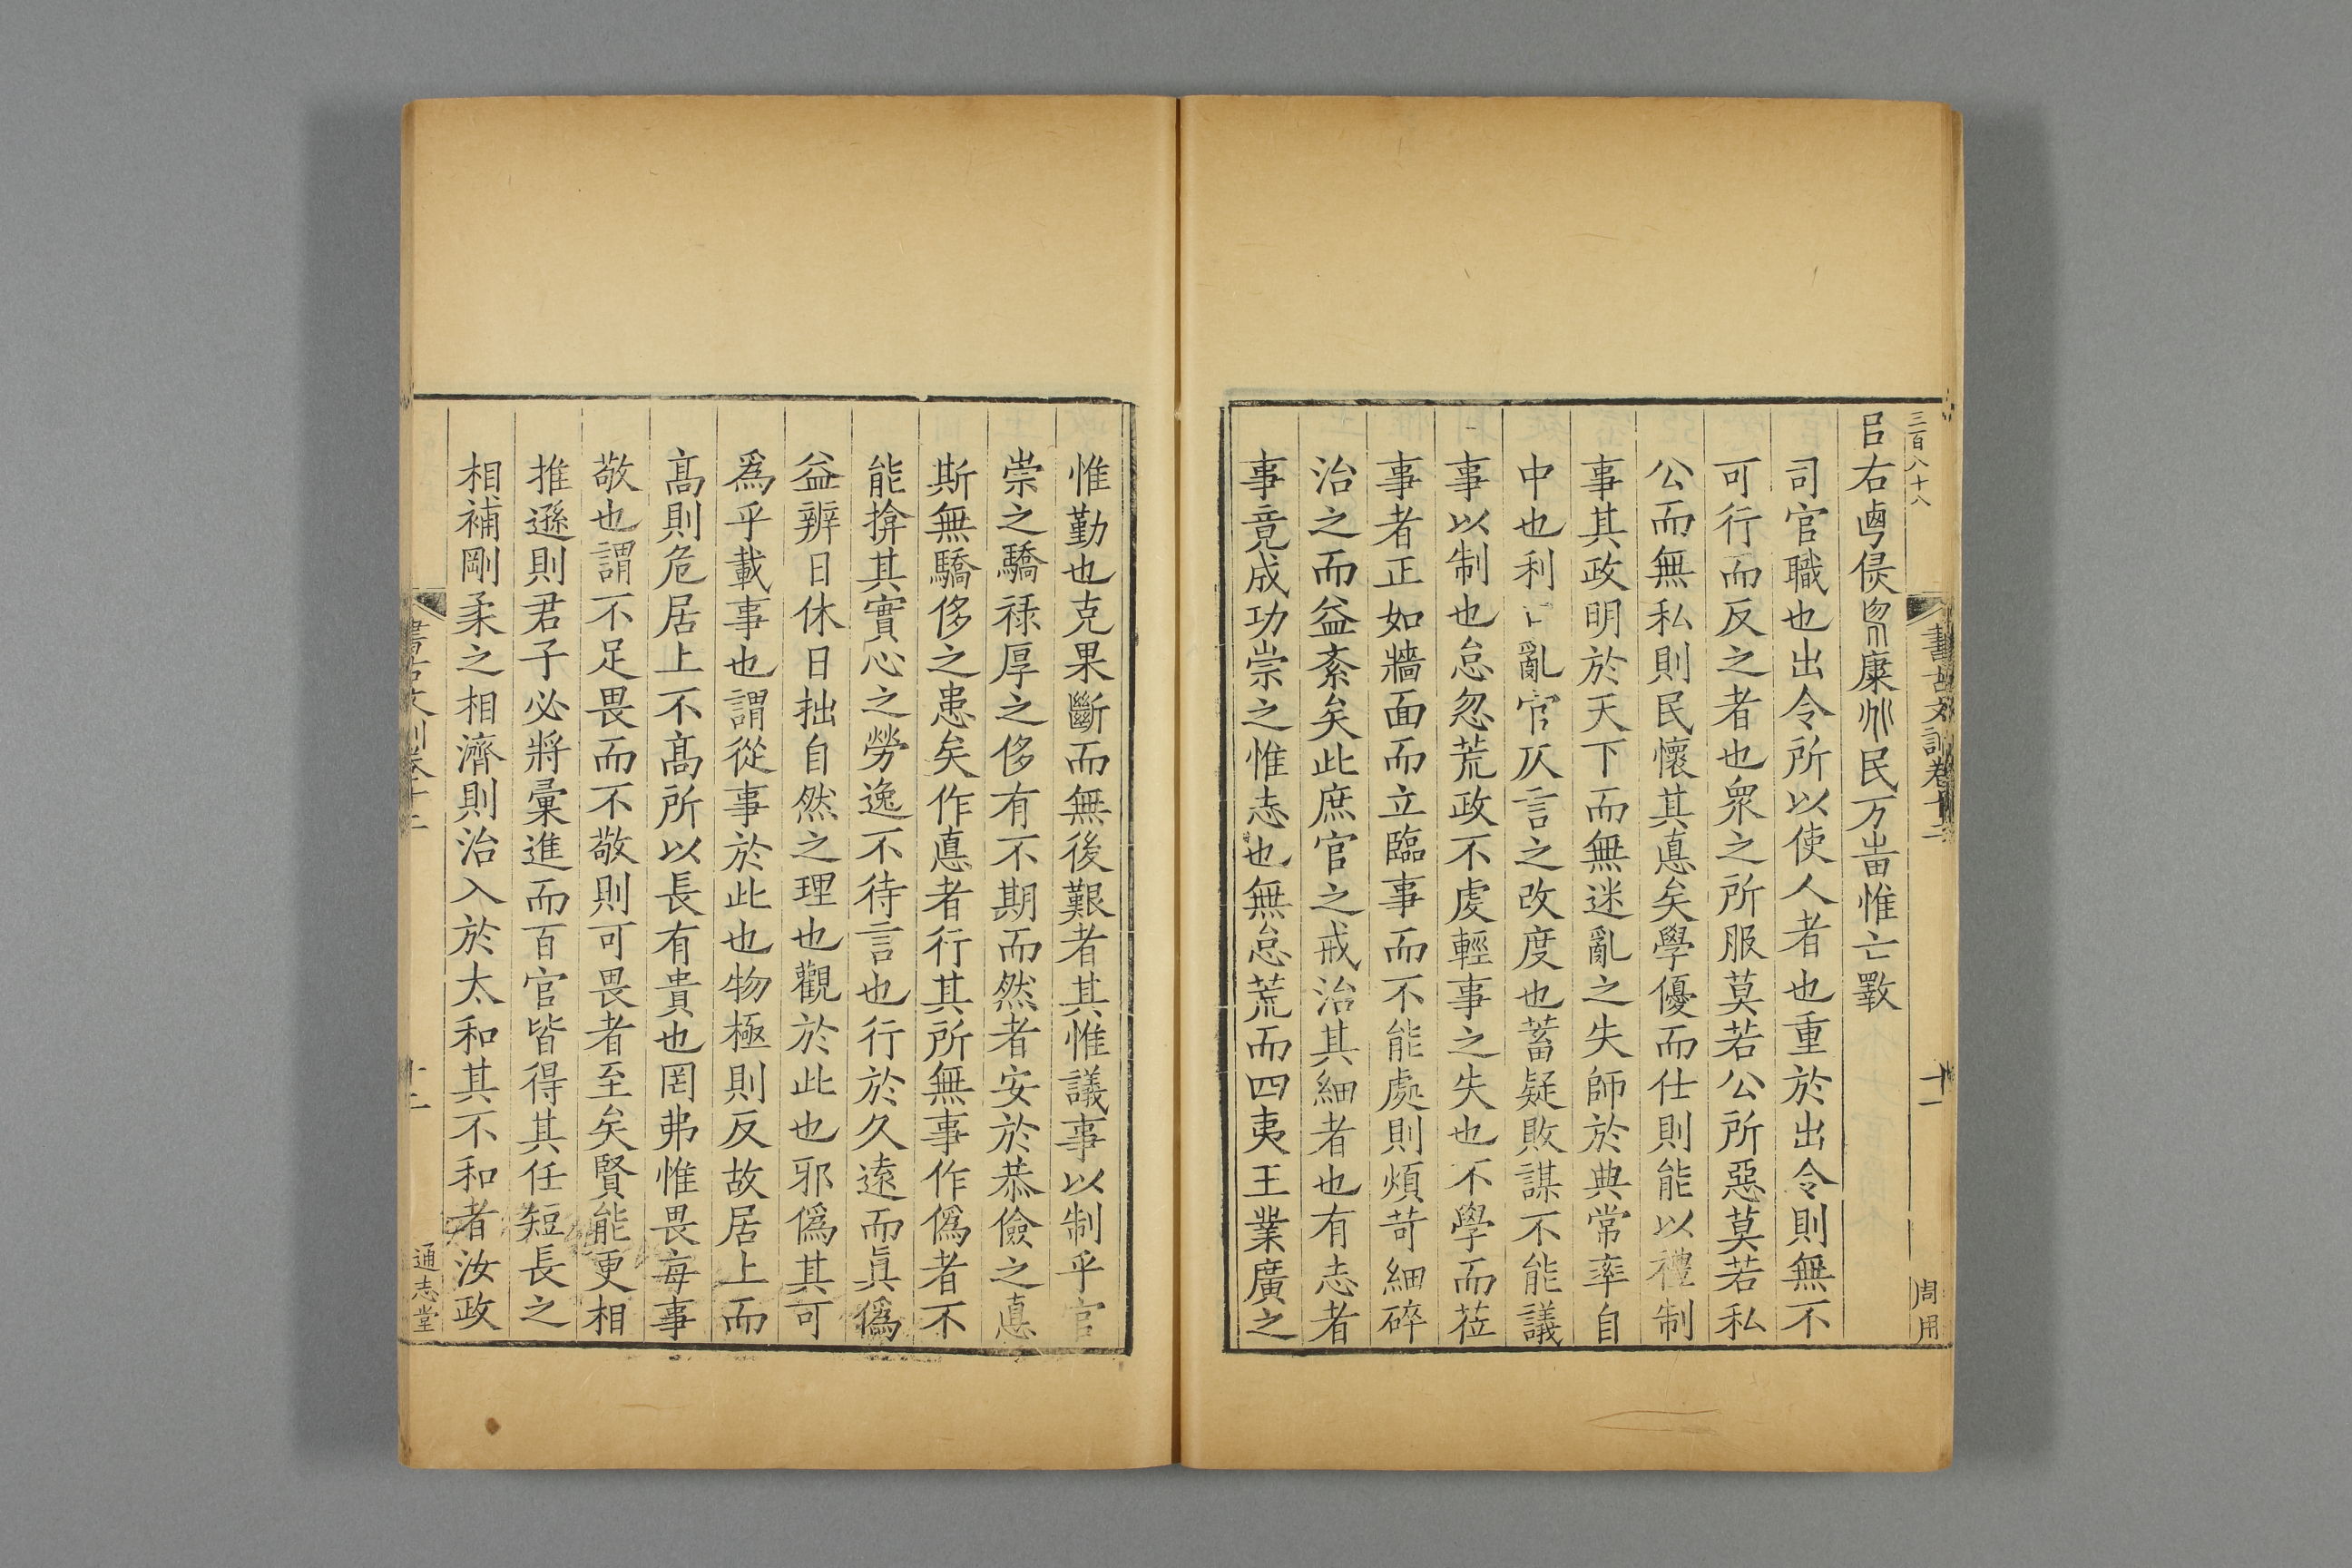 三百八十八
書古文訓卷十二
十一
周用
㠯右卣侯㽙康𠈃民万㞷惟亡斁
司官職也出令所以使人者也重於出令則無不
可行而反之者也衆之所服莫若公所惡莫若私
公而無私則民懷其悳矣學優而仕則能以禮制
事其政明於天下而無迷亂之失師於典常率自
中也利口亂官仄言之改度也蓄疑敗謀不能議
事以制也怠忽荒政不虔輕事之失也不學而莅
事者正如牆面而立臨事而不能處則煩苛細碎
治之而益紊矣此庶官之戒治其細者也有志者
事竟成功崇之惟志也無怠荒而四夷王業廣之
惟勤也克果斷而無後艱者其惟議事以制乎官
崇之驕祿厚之侈有不期而然者安於恭儉之悳
斯無驕侈之患矣作悳者行其所無事作僞者不
能揜其實心之勞逸不待言也行於久遠而眞僞
益辨日休日拙自然之理也觀於此也邪僞其可
爲乎載事也謂從事於此也物極則反故居上而
髙則危居上不髙所以長有貴也罔弗惟畏每事
敬也謂不足畏而不敬則可畏者至矣賢能更相
推遜則君子必將彙進而百官皆得其任短長之
相補剛柔之相濟則治入於太和其不和者汝政
書古文訓卷十二
十一
通志堂